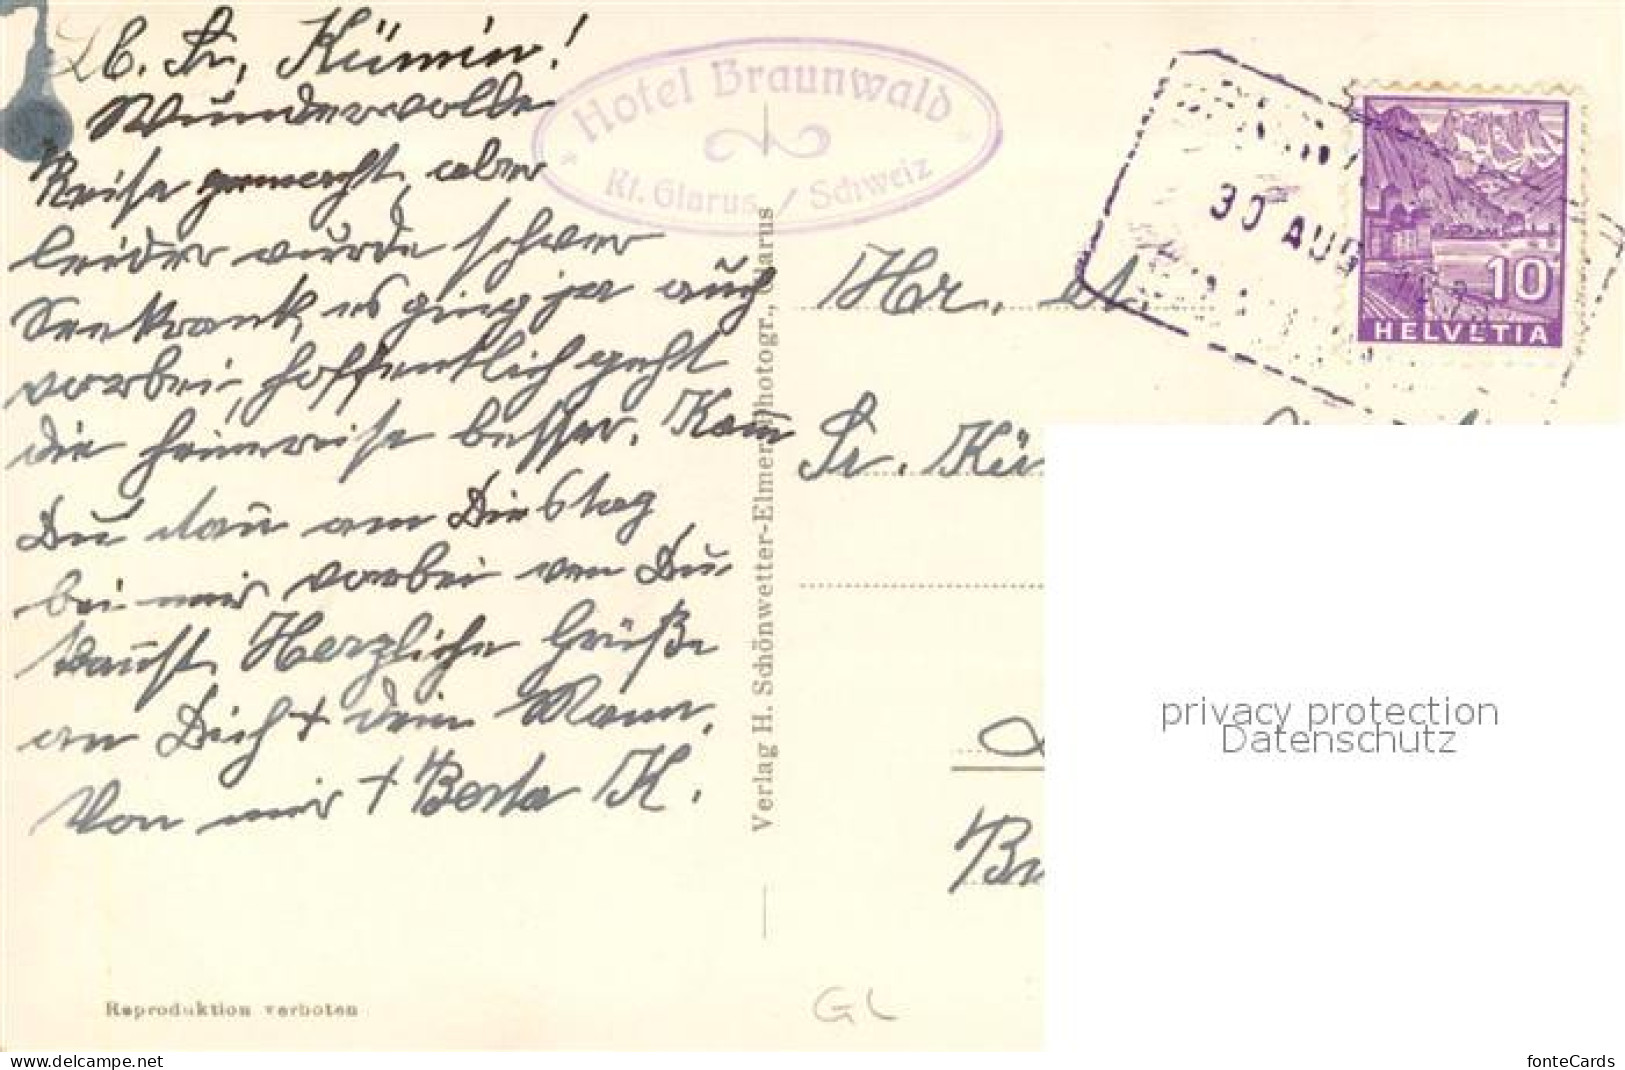 Lb. Fr. Kümin!
Wundervolle
Reise gemacht, aber
leider wurde schwer
Seekrank, es ging ja auch
vorbei, hoffentlich geht
die Heimreise besser. Kom̅
Du dan̄ am Dienstag
bei mir vorbei wen Du
kanst. Herzliche Grüße
an Dich + dein Mann.
Von mir + Berta K.
Reproduktion verboten
Hotel Braunwald
Kt. Glarus / Schweiz
Verlag H. Schönwetter-Elmer, Photogr., Glarus
30 AUG
10
HELVETIA
Hr. u.
Fr. Kü
Br
GL
privacy protection
Datenschutz
www.delcampe.net
fonteCards